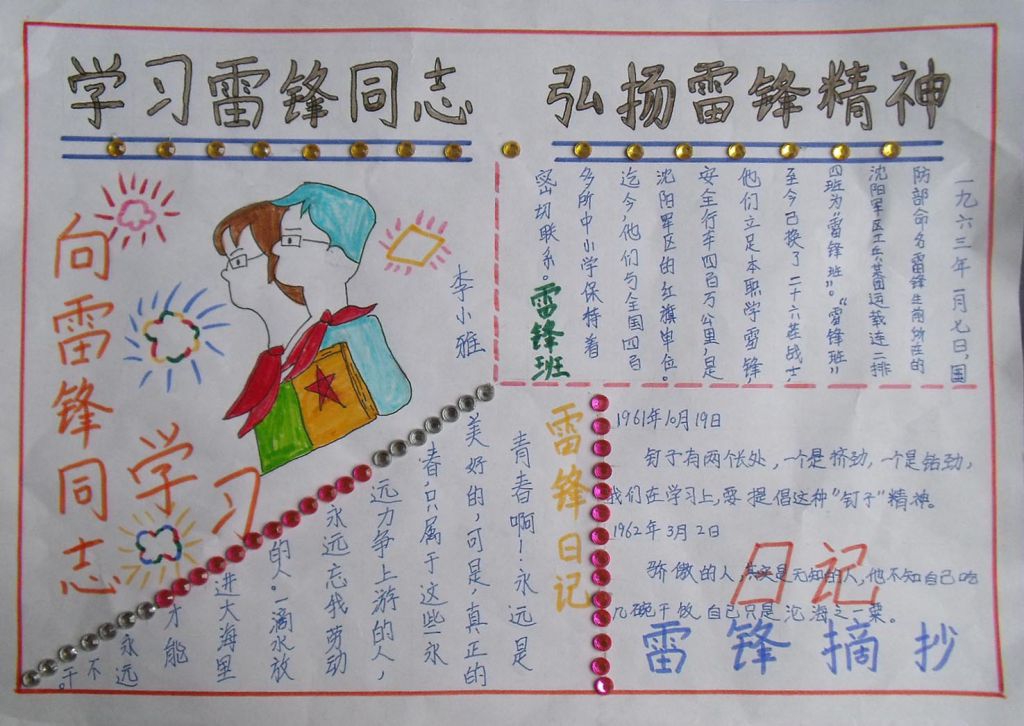 学习雷锋同志
弘扬雷锋精神
向雷锋同志
学习
李小雅
一九六三年一月七日,国
防部命名雷锋生前所在的
沈阳军区工兵某团运载连二排
四班为"雷锋班"。"雷锋班"
至今已换了二十六茬战士,
他们立足本职学雷锋,
安全行车四百万公里,是
沈阳军区的红旗单位。
迄今,他们与全国四百
多所中小学保持着
密切联系。
雷锋班
雷锋日记
青春啊!永远是
美好的,可是,真正的
春,只属于这些永
远力争上游的人,
永远忘我劳动
的人。一滴水放
进大海里
才能
永远
不
干。
1961年10月19日
钉子有两个长处,一个是挤劲,一个是钻劲,
我们在学习上,要提倡这种"钉子"精神。
1962年3月2日
骄傲的人,其实是无知的人,他不知自己吃
几碗干饭,自己只是沧海之一粟。
日记
雷锋摘抄